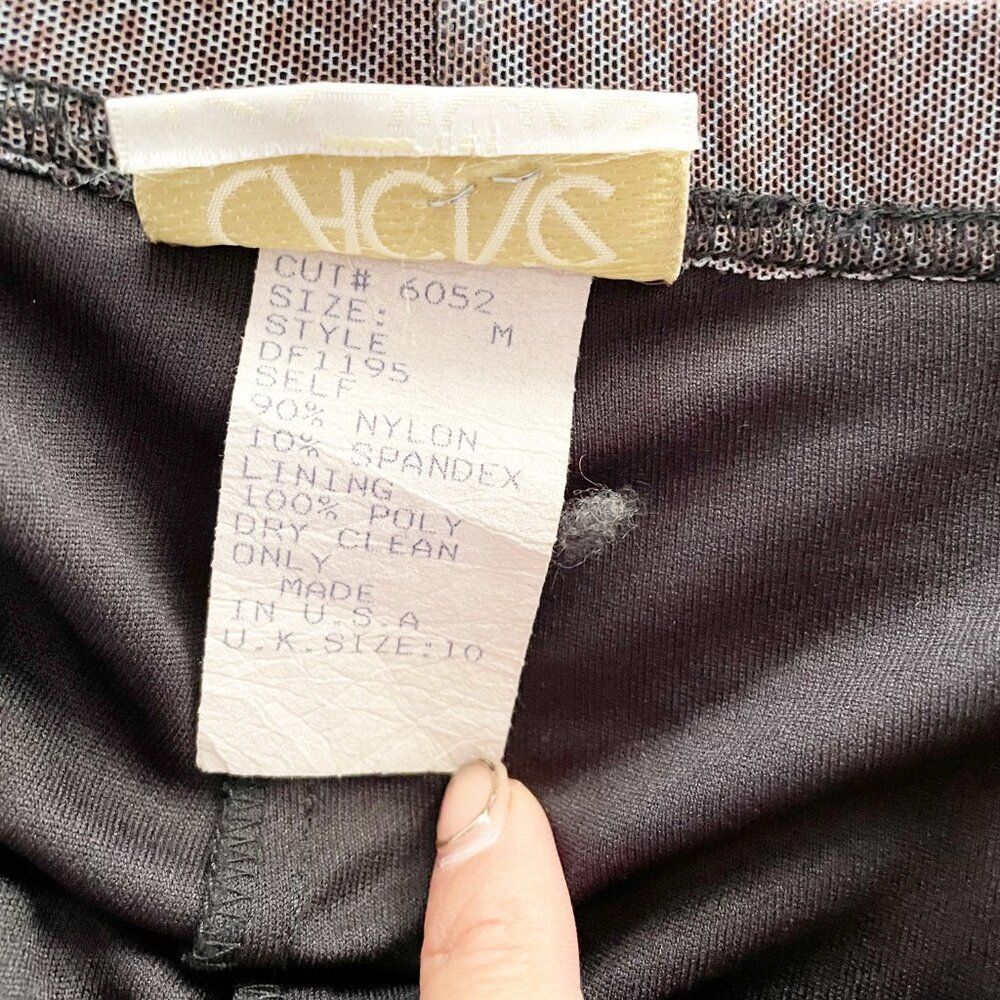 CUT# 6052
SIZE: M
STYLE
DF1195
SELF
90% NYLON
10% SPANDEX
LINING
100% POLY
DRY CLEAN
ONLY
MADE
IN U.S.A
U.K.SIZE:10